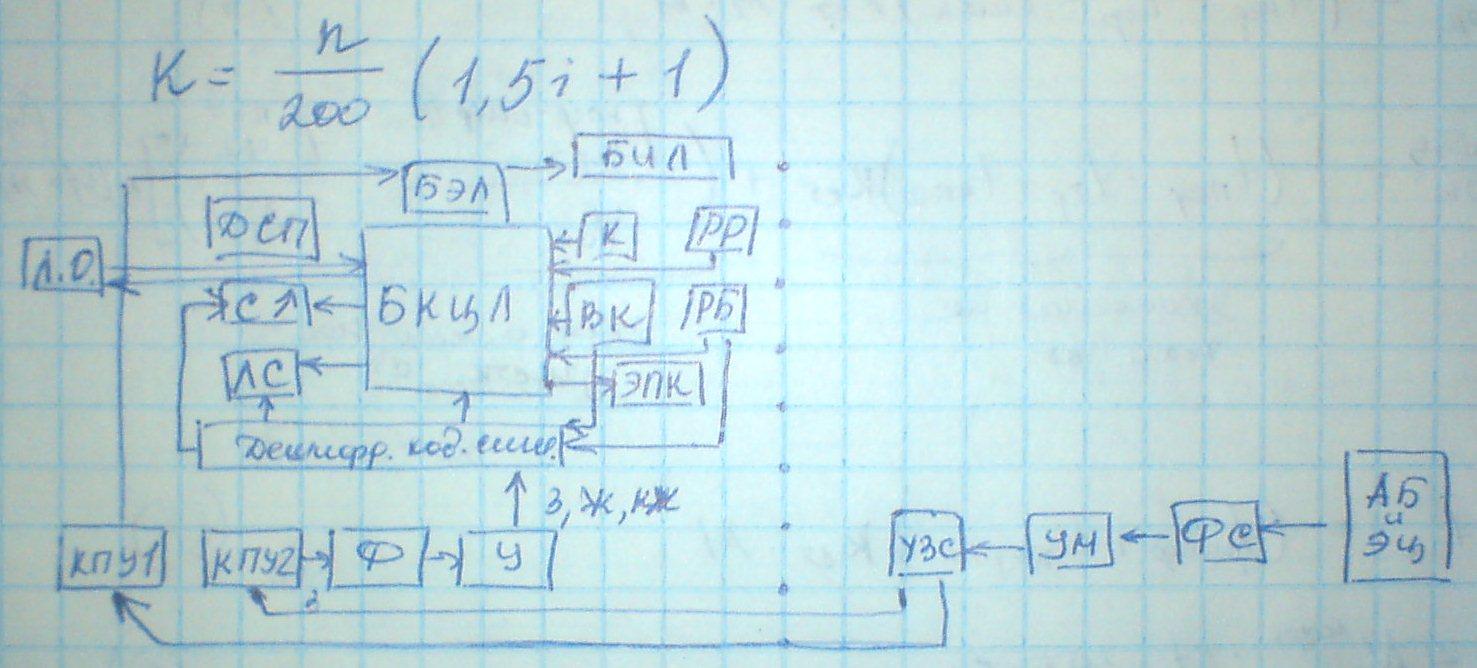 K = n/200 (1,5i + 1)
БИЛ
БЭЛ
ДСП
К
РР
Л.О.
СЛ
БКЦЛ
ВК
РБ
ЛС
ЭПК
Дешифр. код. сигн.
З, Ж, КЖ
АБ
и
ЭЦ
КПУ1
КПУ2
Ф
У
УЗС
УМ
ФС